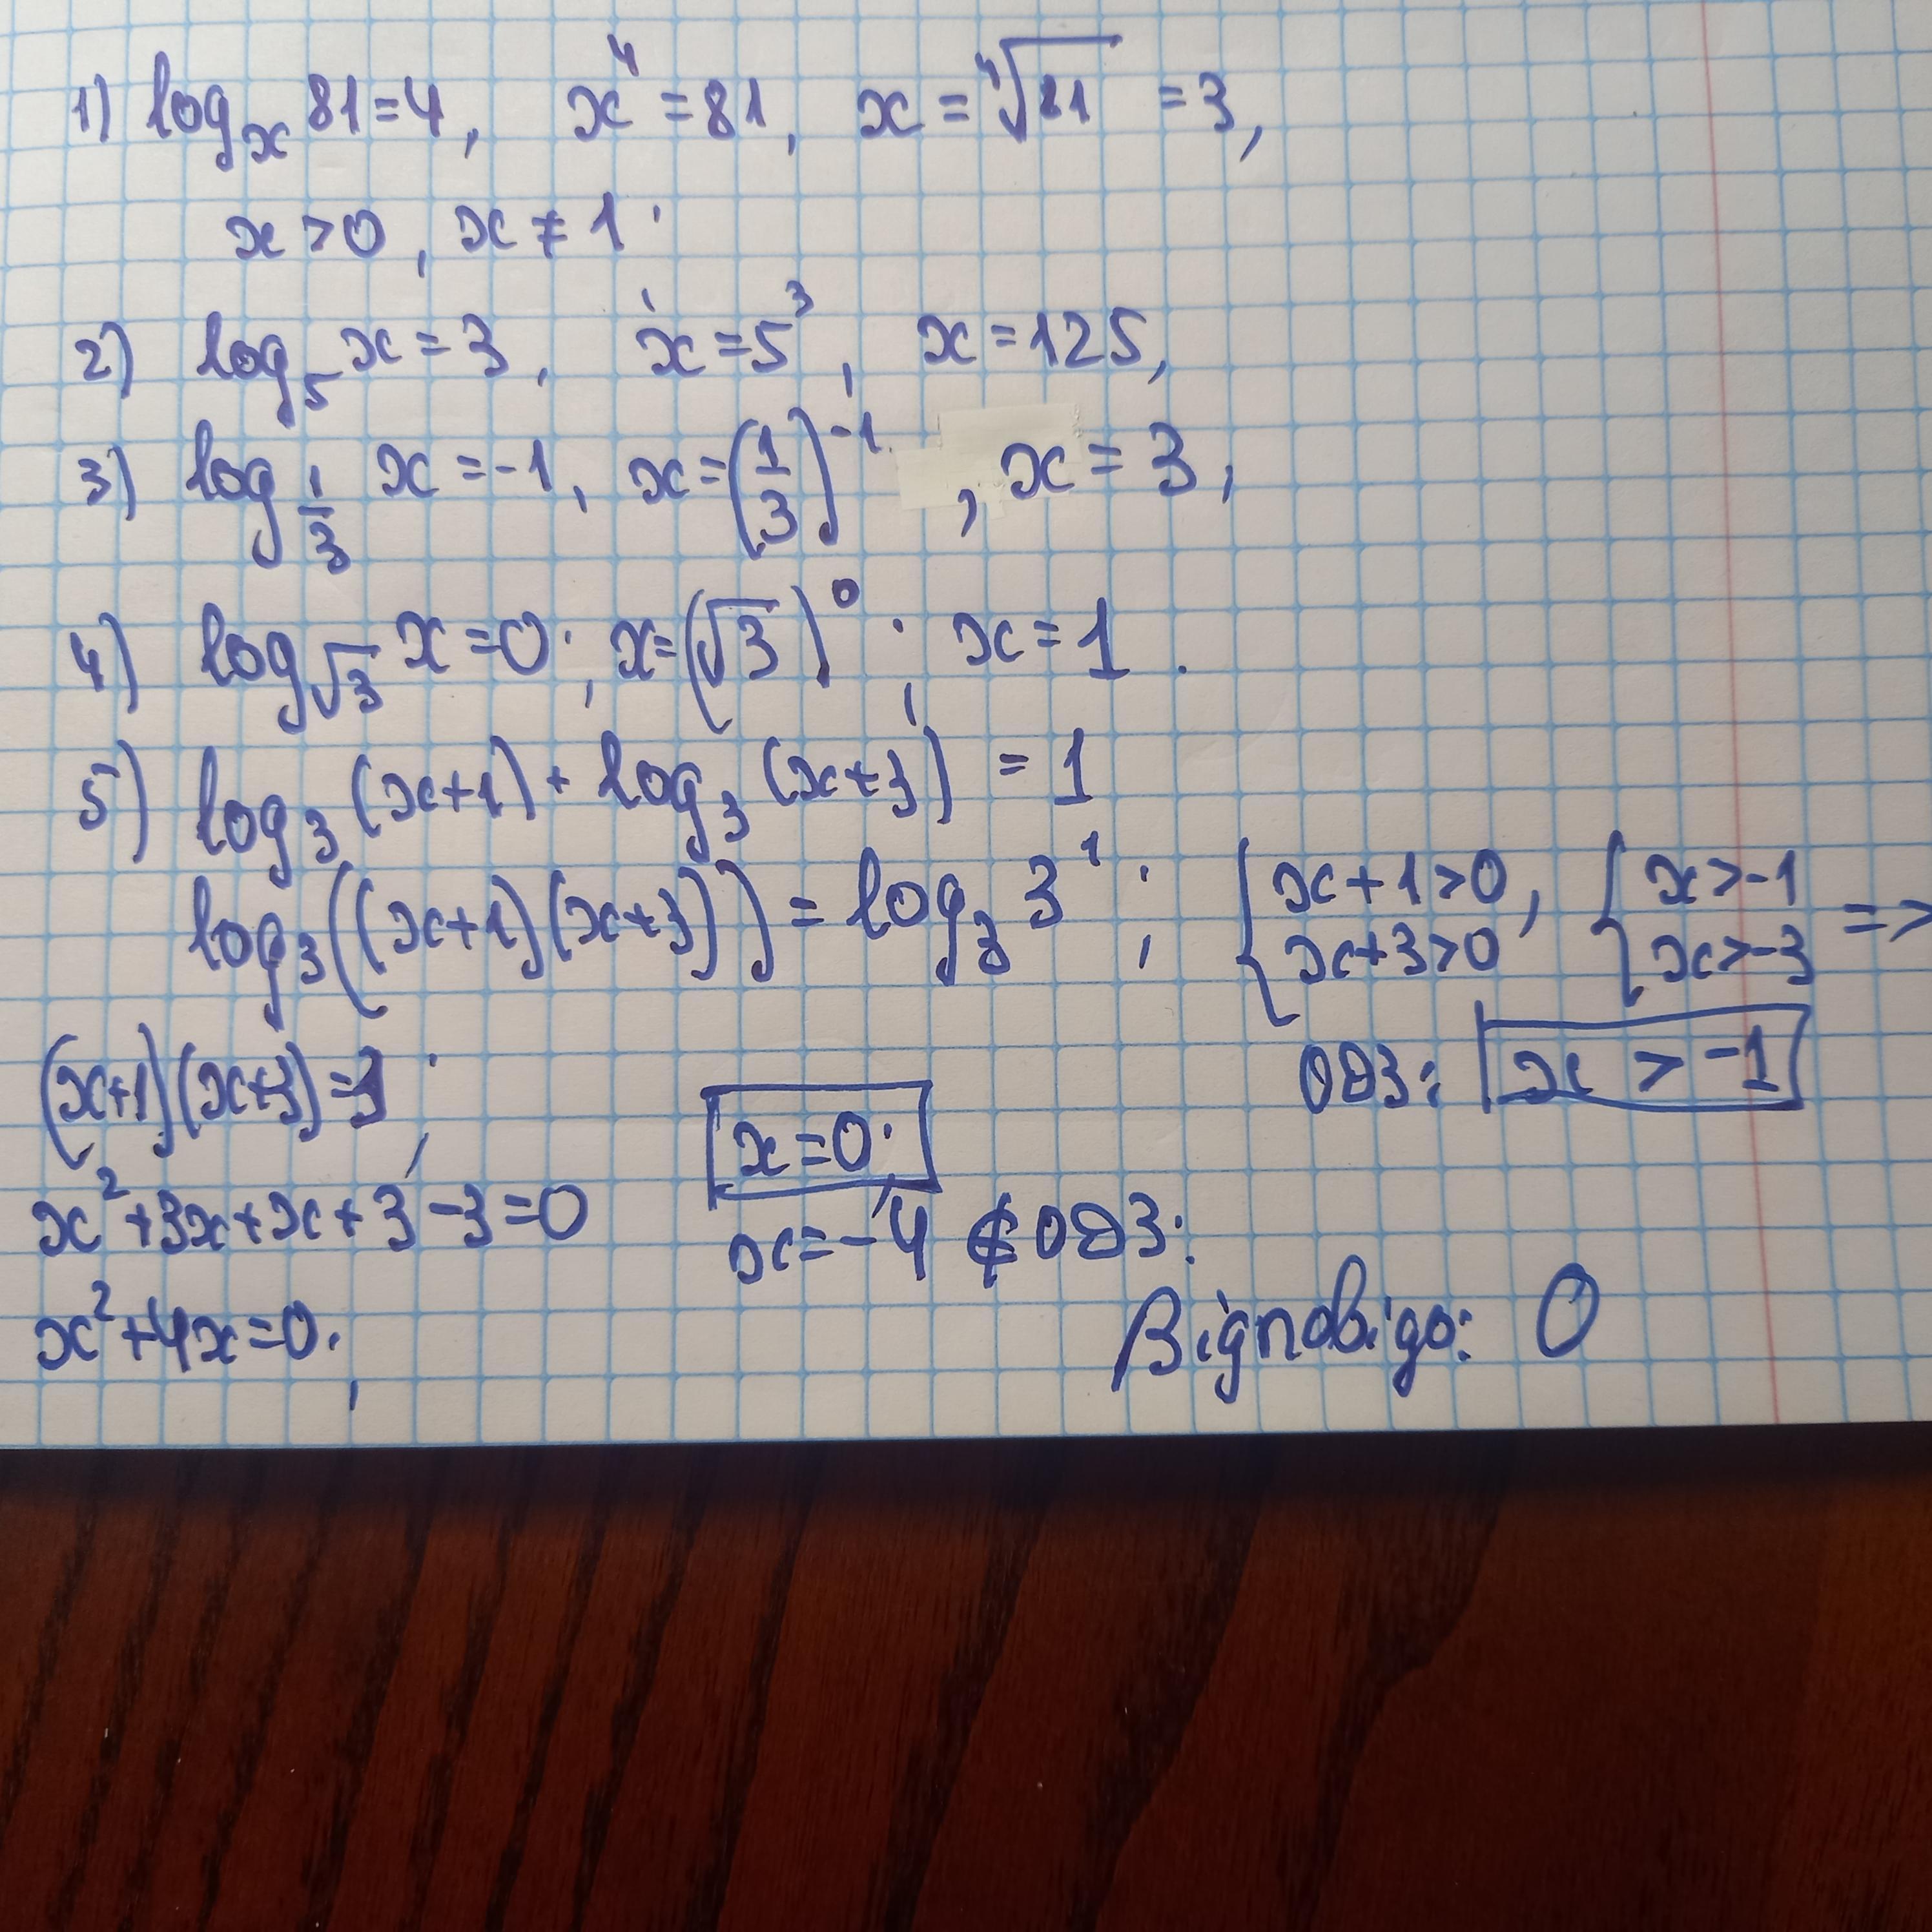 1) log_x 81=4, x^4 =81, x = ⁴√81 =3,
x >0, x ≠ 1.
2) log_5 x = 3, x =5^3, x =125,
3) log_{1/3} x =-1, x =(1/3)^{-1}, x = 3,
4) log_{√3} x =0; x=(√3)^0; x = 1.
5) log_3 (x+1) + log_3 (x+3) = 1
log_3((x+1)(x+3)) = log_3 3^1; { x+1>0, x+3>0, { x>-1 x>-3 =>
(x+1)(x+3)=3; ОДЗ: x > -1
x=0;
x^2+3x+x+3-3=0 x=-4 ∉ ОДЗ.
x^2+4x=0; Відповідь: 0